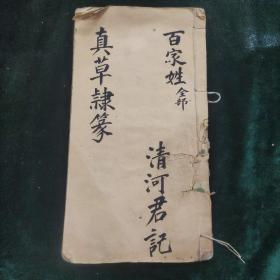 百家姓全部
真草隸篆
清河君記